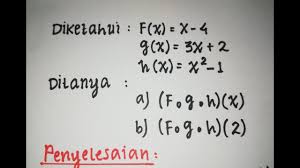 Diketahui : F(x) = x - 4
g(x) = 3x + 2
h(x) = x² - 1
Ditanya :
a) (F o g o h)(x)
b) (F o g o h)(2)
Penyelesaian :